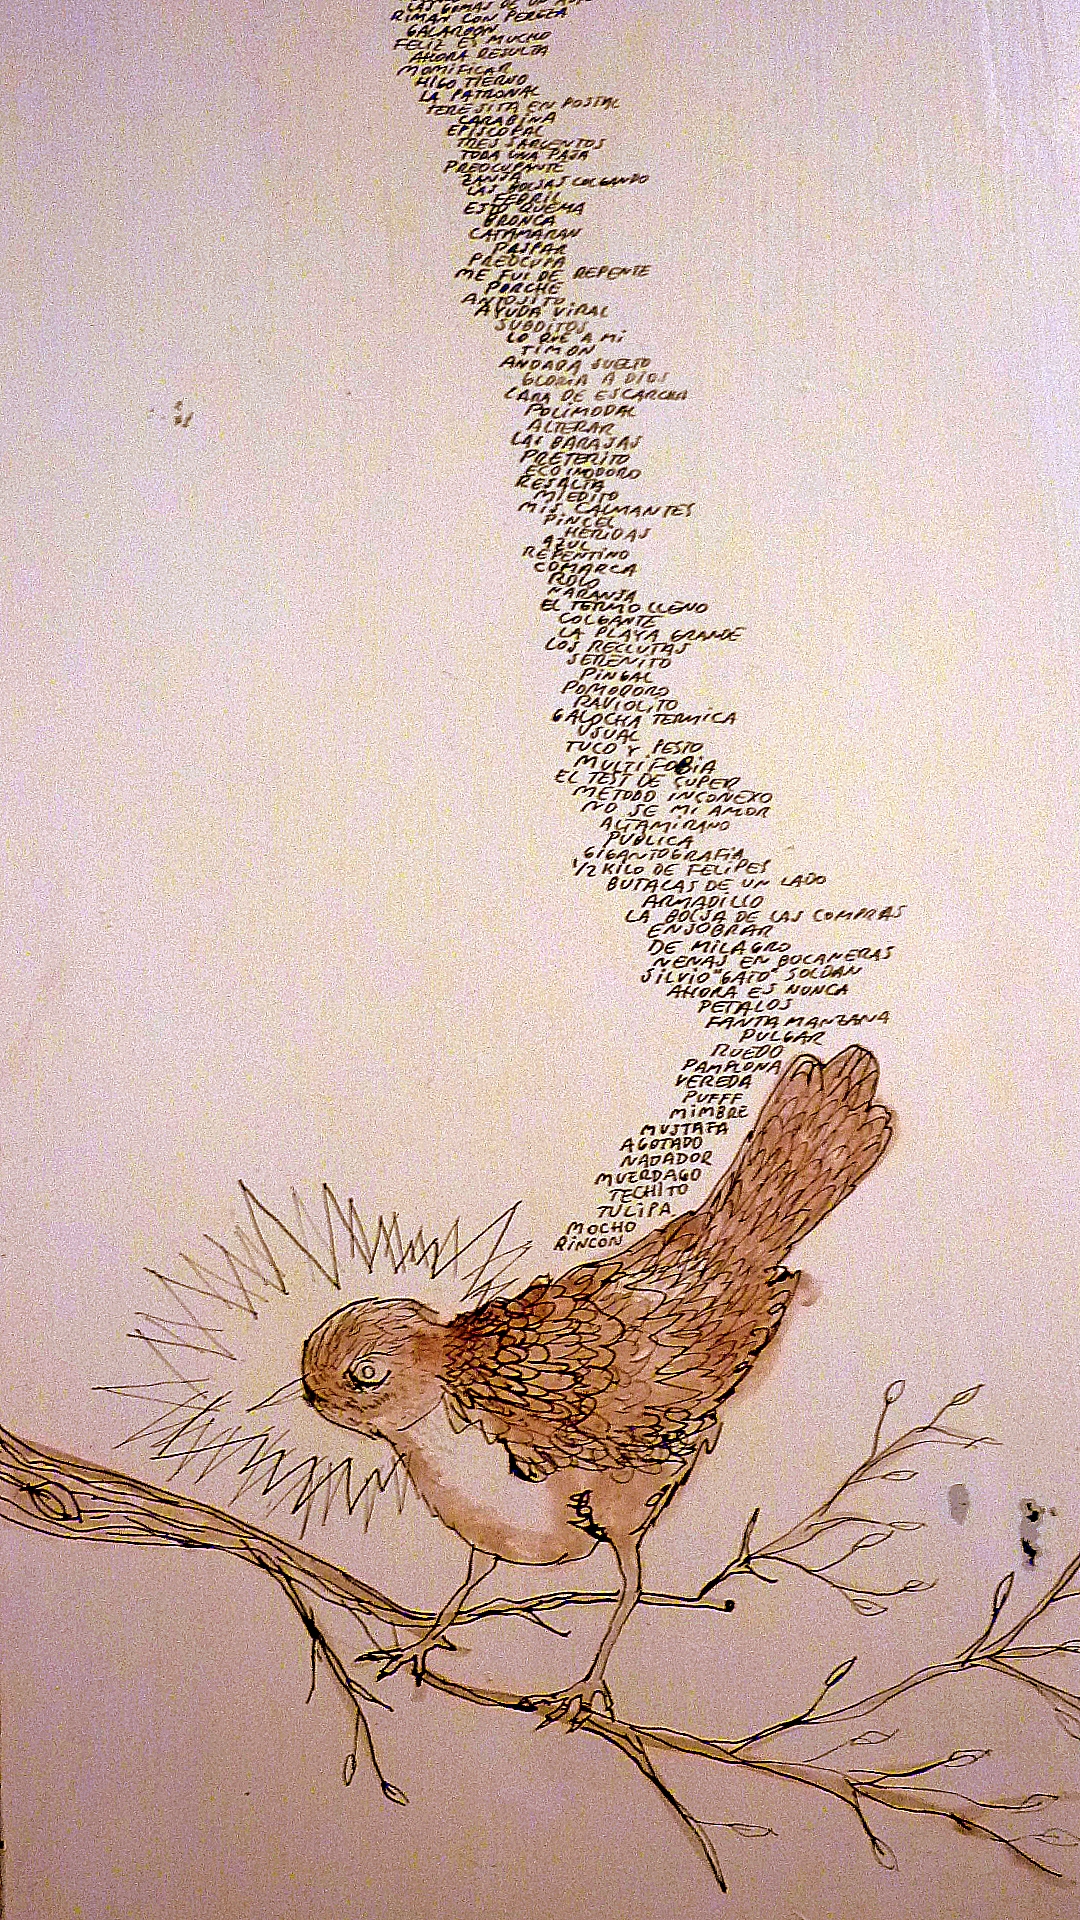 LAS GOMAS DE UN
RIMAR CON PEREZA
GALARDON
FELIZ ES MUCHO
AHORA RESULTA
MOMIFICAR
HIGO TIERNO
LA PATRONAL
TERESITA EN POSTAL
CARABINA
EPISCOPAL
TRES SARGENTOS
TODA UNA PAJA
PREOCUPANTE
ZANJA
LAS BOLSAS COLGANDO
FEBRIL
ESTO QUEMA
BRONCA
CATAMARAN
PASPAR
PREOCUPA
ME FUI DE REPENTE
PORCHE
ANTOJITO
AYUDA VIRAL
SUBDITOS
LO QUE A MI
TIMON
ANDABA SUELTO
GLORIA A DIOS
CARA DE ESCARCHA
POLIMODAL
ALTERAR
LAS BARAJAS
PRETERITO
ECO INODORO
RESALTA
MIEDITO
MIS CALMANTES
PINCEL
HERIDAS
AZUL
REPENTINO
COMARCA
ROLO
NARANJA
EL TERMO LLENO
COLGANTE
LA PLAYA GRANDE
LOS RECLUTAS
SERENITO
PINGAL
POMODORO
RAVIOLITO
GALOCHA TERMICA
USUAL
TUCO Y PESTO
MULTIFOBIA
EL TEST DE CUPER
METODO INCONEXO
NO SE MI AMOR
ALTAMIRANO
PUBLICA
GIGANTOGRAFIA
1/2 KILO DE FELIPES
BUTACAS DE UN LADO
ARMADILLO
LA BOLSA DE LAS COMPRAS
ENSOBRAR
DE MILAGRO
NENAS EN BUCANERAS
SILVIO "GATO" SOLDAN
AHORA ES NUNCA
PETALOS
FANTA MANZANA
PULGAR
RUEDO
PAMPLONA
VEREDA
PUFFF
MIMBRE
MUSTAFA
AGOTADO
NADADOR
MUERDAGO
TECHITO
TULIPA
MOCHO
RINCON